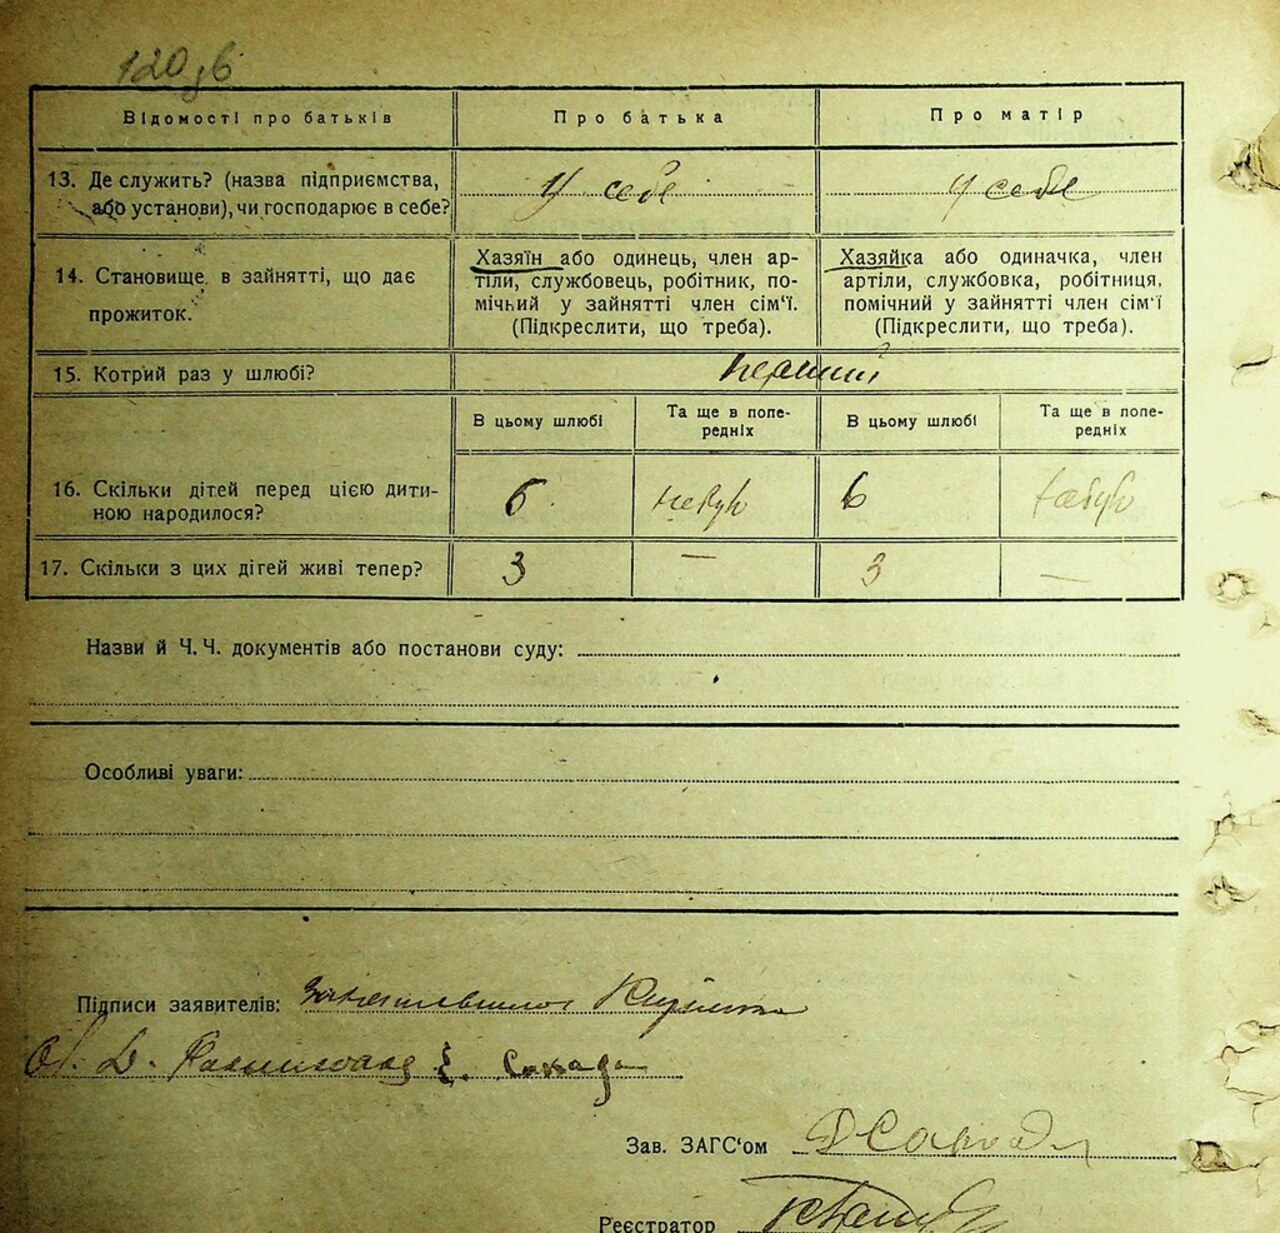 120 зв
Відомості про батьків
Про батька
Про матір
13. Де служить? (назва підприємства,
або установи), чи господарює в себе?
У себе
У себе
14. Становище в зайнятті, що дає
прожиток.
Хазяїн або одинець, член ар-
тіли, службовець, робітник, по-
мічний у зайнятті член сім‘ї.
(Підкреслити, що треба).
Хазяйка або одиначка, член
артіли, службовка, робітниця,
помічний у зайнятті член сім‘ї
(Підкреслити, що треба).
15. Котрий раз у шлюбі?
перший
В цьому шлюбі
Та ще в попе-
редніх
В цьому шлюбі
Та ще в попе-
редніх
16. Скільки дітей перед цією дити-
ною народилося?
6
6
17. Скільки з цих дітей живі тепер?
3
—
3
—
Назви й Ч. Ч. документів або постанови суду:
Особливі уваги:
Підписи заявителів:
Зав. ЗАГС‘ом
Реєстратор